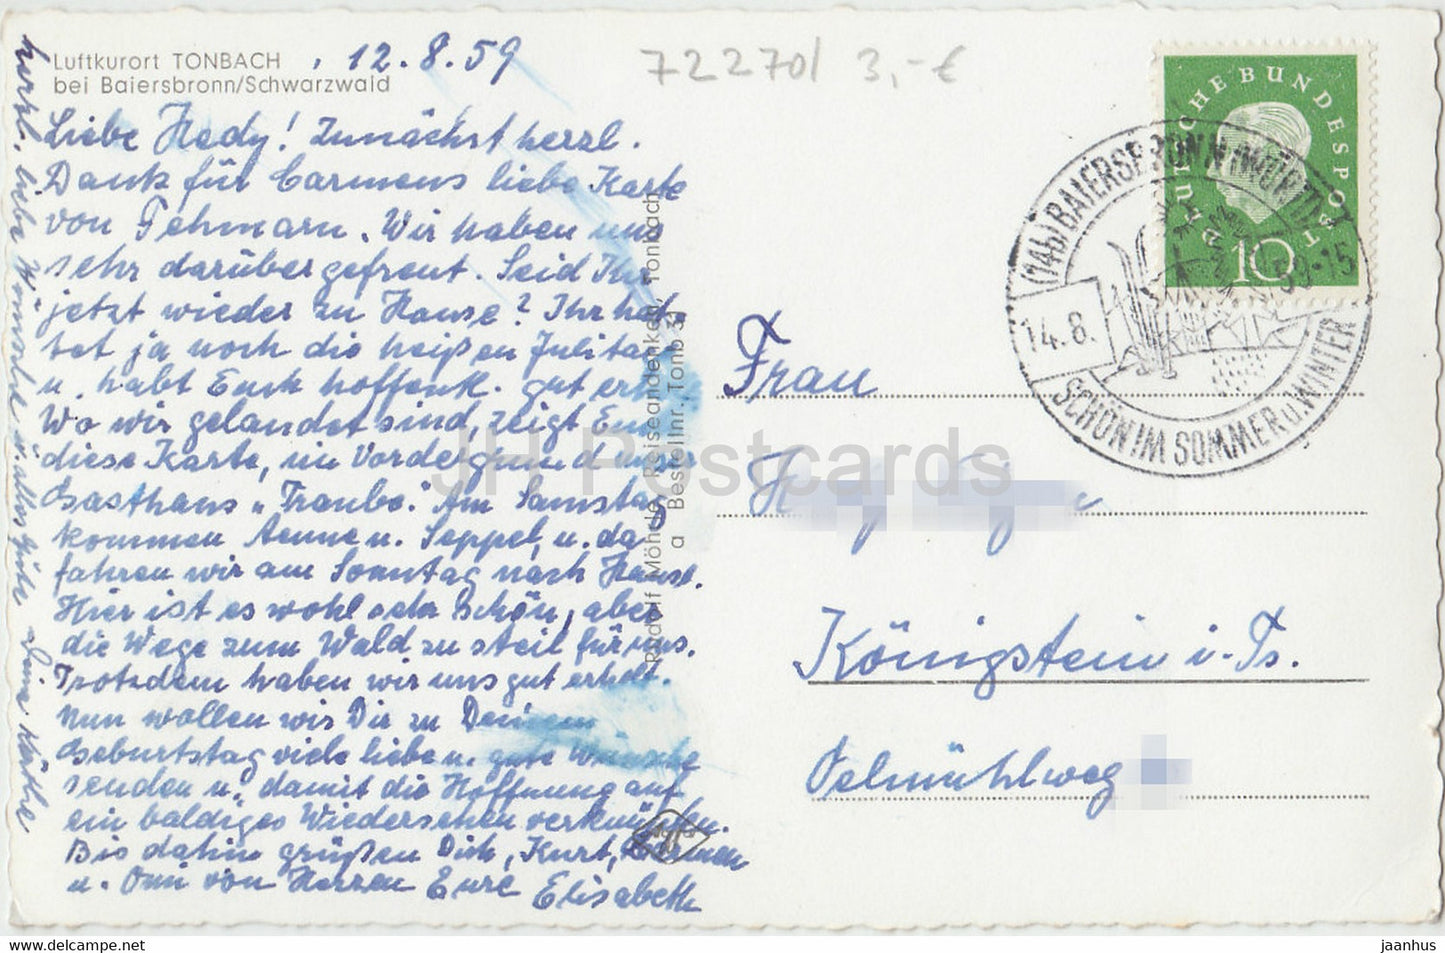 Luftkurort TONBACH
bei Baiersbronn/Schwarzwald
, 12.8.59
72270/ 3,-€
Liebe Hedy! Zunächst herzl.
Dank für Carmens liebe Karte
von Fehmarn. Wir haben uns
sehr darüber gefreut. Seid Ihr
jetzt wieder zu Hause? Ihr hat
tet ja noch die heißen Julitage
u. habt Euch hoffentl. gut erholt
Wo wir gelandet sind, zeigt Euch
diese Karte, im Vordergrund unser
Gasthaus „Traube". Am Samstag
kommen Aenne u. Seppel, u. da
fahren wir am Sonntag nach Hause.
Hier ist es wohl sehr schön, aber
die Wege zum Wald zu steil für uns.
Trotzdem haben wir uns gut erholt.
Nun wollen wir Dir zu Deinem
Geburtstag viele liebe u. gute Wünsche
senden u. damit die Hoffnung auf
ein baldiges Wiedersehen verknüpfen.
Bis dahin grüßen Dich, Kurt, Carmen
u. Omi von Herzen Eure Elisabeth
herzl. liebe Wünsche u. alles Gute Deine Käthe
Rudolf Möhrle, Reiseandenken, Tonbach
a Bestellnr. Tonb 3
Agfa
DEUTSCHE BUNDESPOST
10
(14b) BAIERSBRONN (WÜRTT)
14.8. 59-15
SCHÖN IM SOMMER u. WINTER
Frau
Königstein i. Ts.
Oelmühlweg
JH Postcards
www.delcampe.net
jaanhus